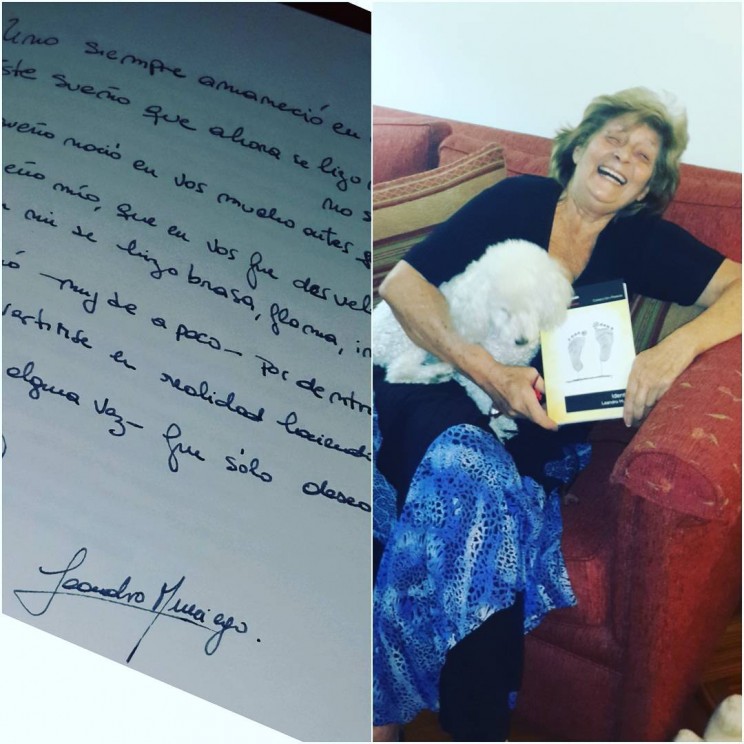 siempre amaneció en
este sueño que ahora se hizo
no s
sueño nació en vos mucho antes q
eño mío, que en vos fue desvel
mi se hizo brasa, flama, in
ó —muy de a poco— por derrib
vertirse en realidad haciend
alguna vez— fue sólo deseo
Leandro Murciego.
Leandro M